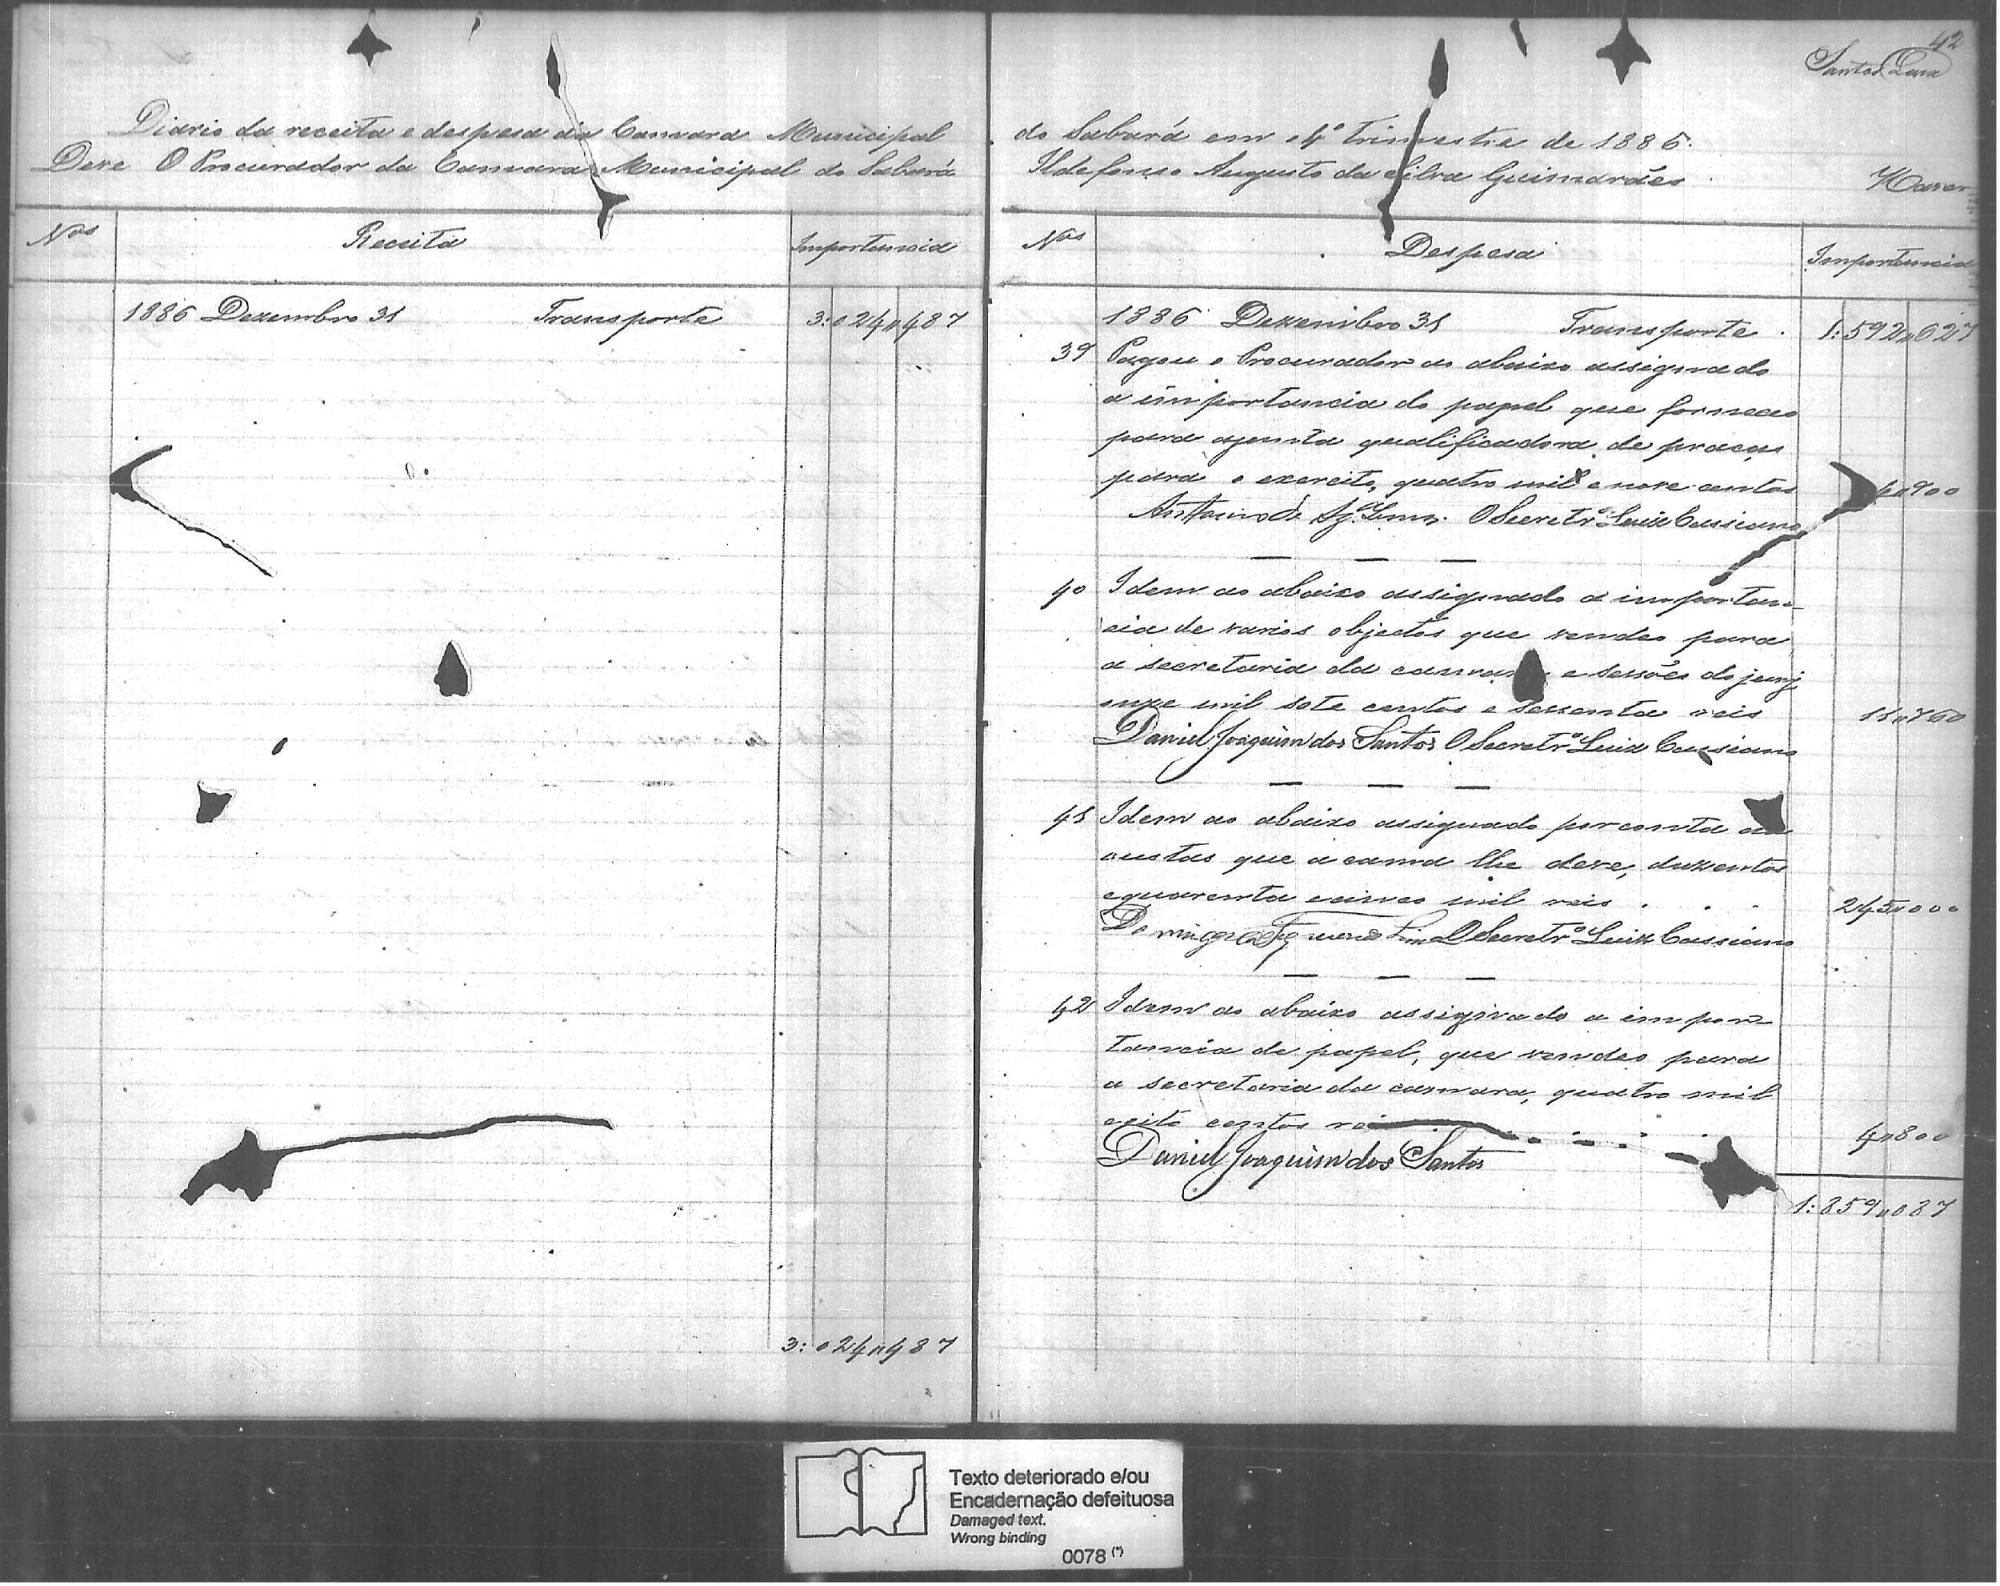 42
Santos Lara
Diario da receita e despesa da Camara Municipal
Deve O Procurador da Camara Municipal do Sabará
Nos Receita Importancia
1886 Dezembro 31 Transporte 3:024"487
3:024"487
do Sabará em 4º Trimestre de 1886.
Ildefonso Augusto da Silva Guimarães Haver
Nos Despesa Importancia
1886 Dezembro 31 Transporte 1:592"627
39 Pagou o Procurador ao abaixo assignado
a importancia do papel que forneceo
para ajunta qualificadora de praças
para o exercito, quatro mil e nove centos 4"900
Antonio de Sz.ª Lima. O Secretrº Luiz Cassiano
40 Idem ao abaixo assignado a importan-
cia de varios objectos que vendeo para
a secretaria da camara e sessões do jury
onze mil sete centos e sessenta reis 11"760
Daniel Joaquim dos Santos O Secretrº Luiz Cassiano
41 Idem ao abaixo assignado por conta de
custas que a cama lhe deve, duzentos
equarenta ecinco mil reis . . . 245"000
Domingos Lima O Secretrº Luiz Cassiano
42 Idem ao abaixo assignado a impor-
tancia de papel, que vendeo para
a secretaria da camara, quatro mil
eoito centos reis 4"800
Daniel Joaquim dos Santos
1:859"087
Texto deteriorado e/ou
Encadernação defeituosa
Damaged text.
Wrong binding
0078 (*)